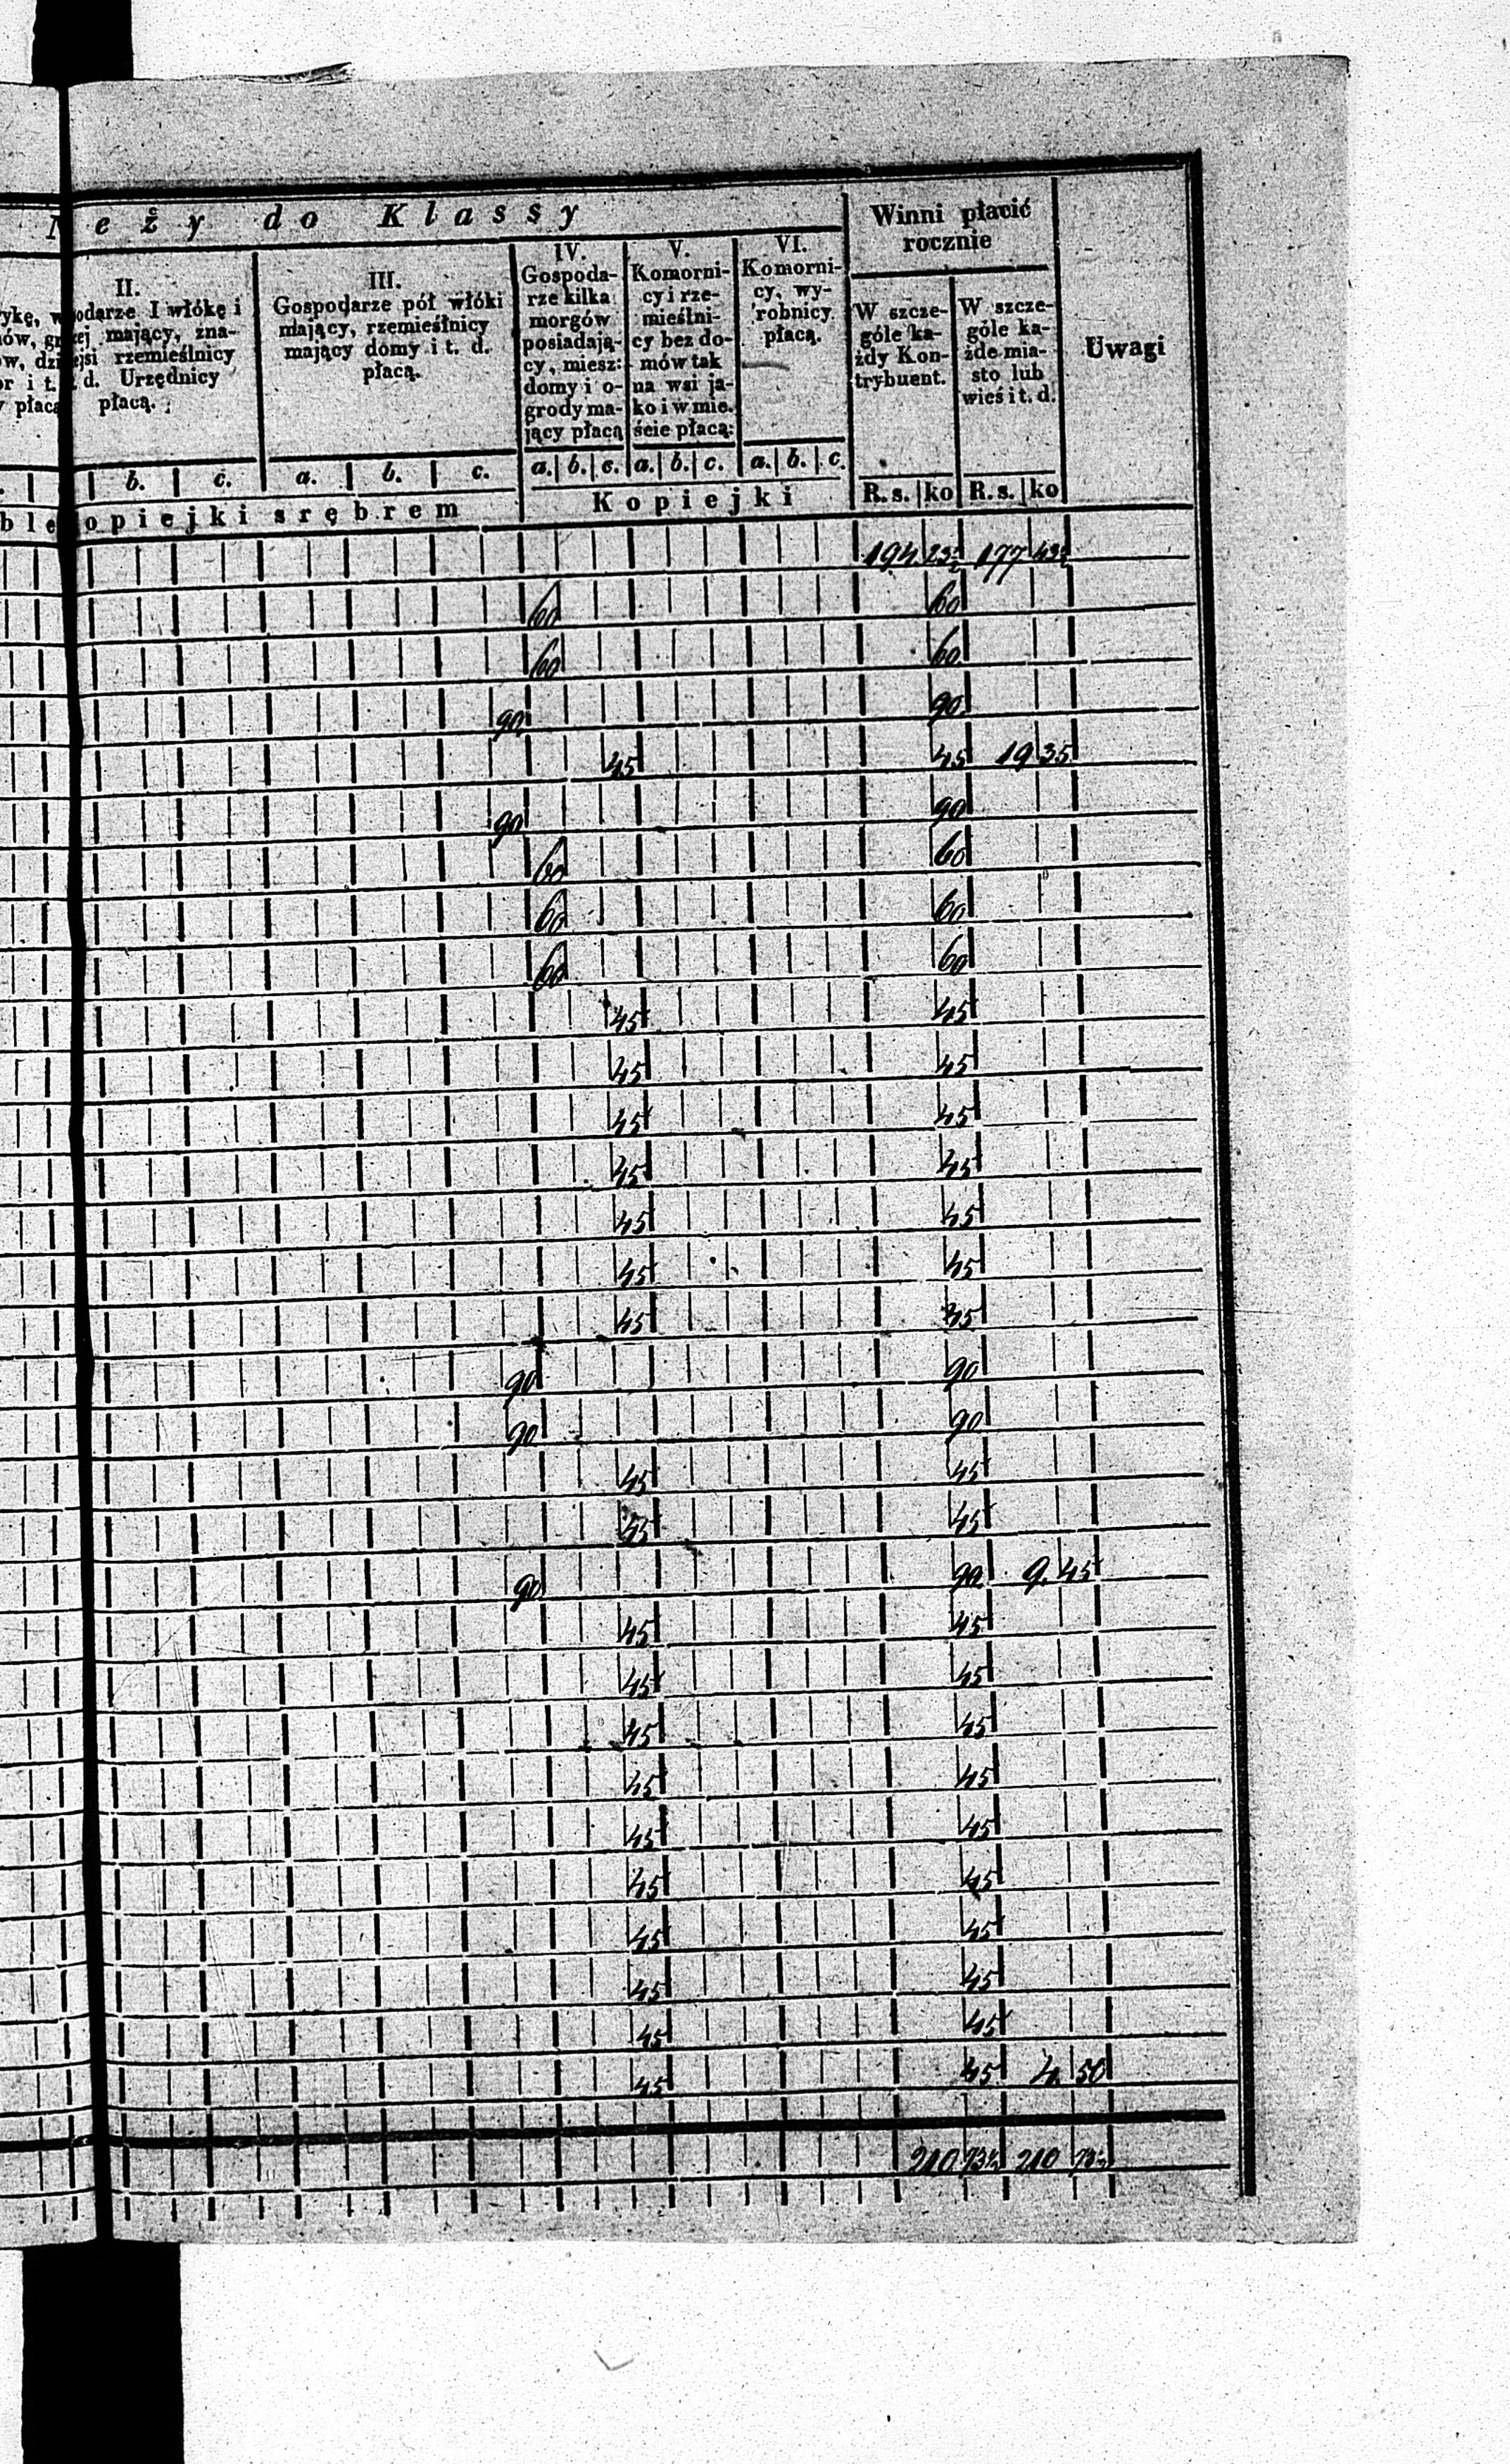 eży do Klassy
Winni płacić
rocznie
Uwagi
II.
odarze I włókę i
ej mający, zna-
jsi rzemieślnicy
d. Urzędnicy
płacą.
III.
Gospodarze pół włóki
mający, rzemieślnicy
mający domy i t. d.
płacą.
IV.
Gospoda-
rze kilka
morgów
posiadają-
cy, miesz:
domy i o-
grody ma-
jący płacą
V.
Komorni-
cy i rze-
mieślni-
cy bez do-
mów tak
na wsi ja-
ko i w mie.
ście płacą:
VI.
Komorni-
cy, wy-
robnicy
płacą.
W szcze-
góle ka-
żdy Kon-
trybuent.
W szcze-
góle ka-
żde mia-
sto lub
wieś i t. d.
b. c. a. b. c. a. b. c. a. b. c. a. b. c.
R. s. ko R. s. ko
opiejki srębrem Kopiejki
194 23½ 177 43½
60 60
60 60
90 90
45 45 19 35
90 90
60 60
60 60
60 60
45 45
45 45
45 45
45 45
45 45
45 45
45 45
90 90
90 90
45 45
45 45
90 90 9. 45
45 45
45 45
45 45
45 45
45 45
45 45
45 45
45 45
45 45
45 45 4. 50
210 73½ 210 73½